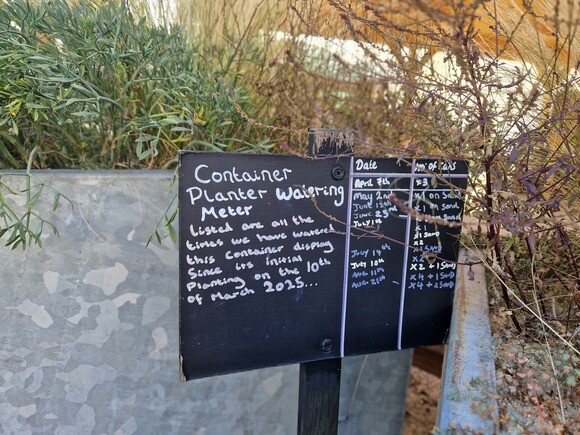 Container
Planter Watering
Meter
Listed are all the
times we have watered
this container display
Since its initial
Planting on the 10th
of March 2025...
Date of Cans
April 7th x3
May 2nd x1 on Sand
June
June 23rd
July 1st
x2
July 1 th
July 18th x2 + 1 Sand
Aug 11th x4 + 1 Sand
Aug 21st x4 +